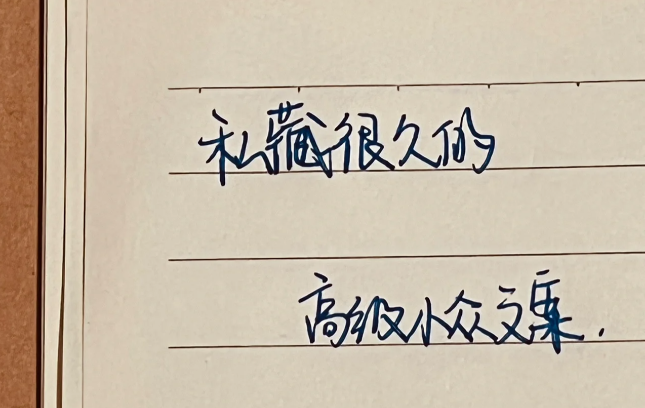 私藏很久的
高级小众文案.